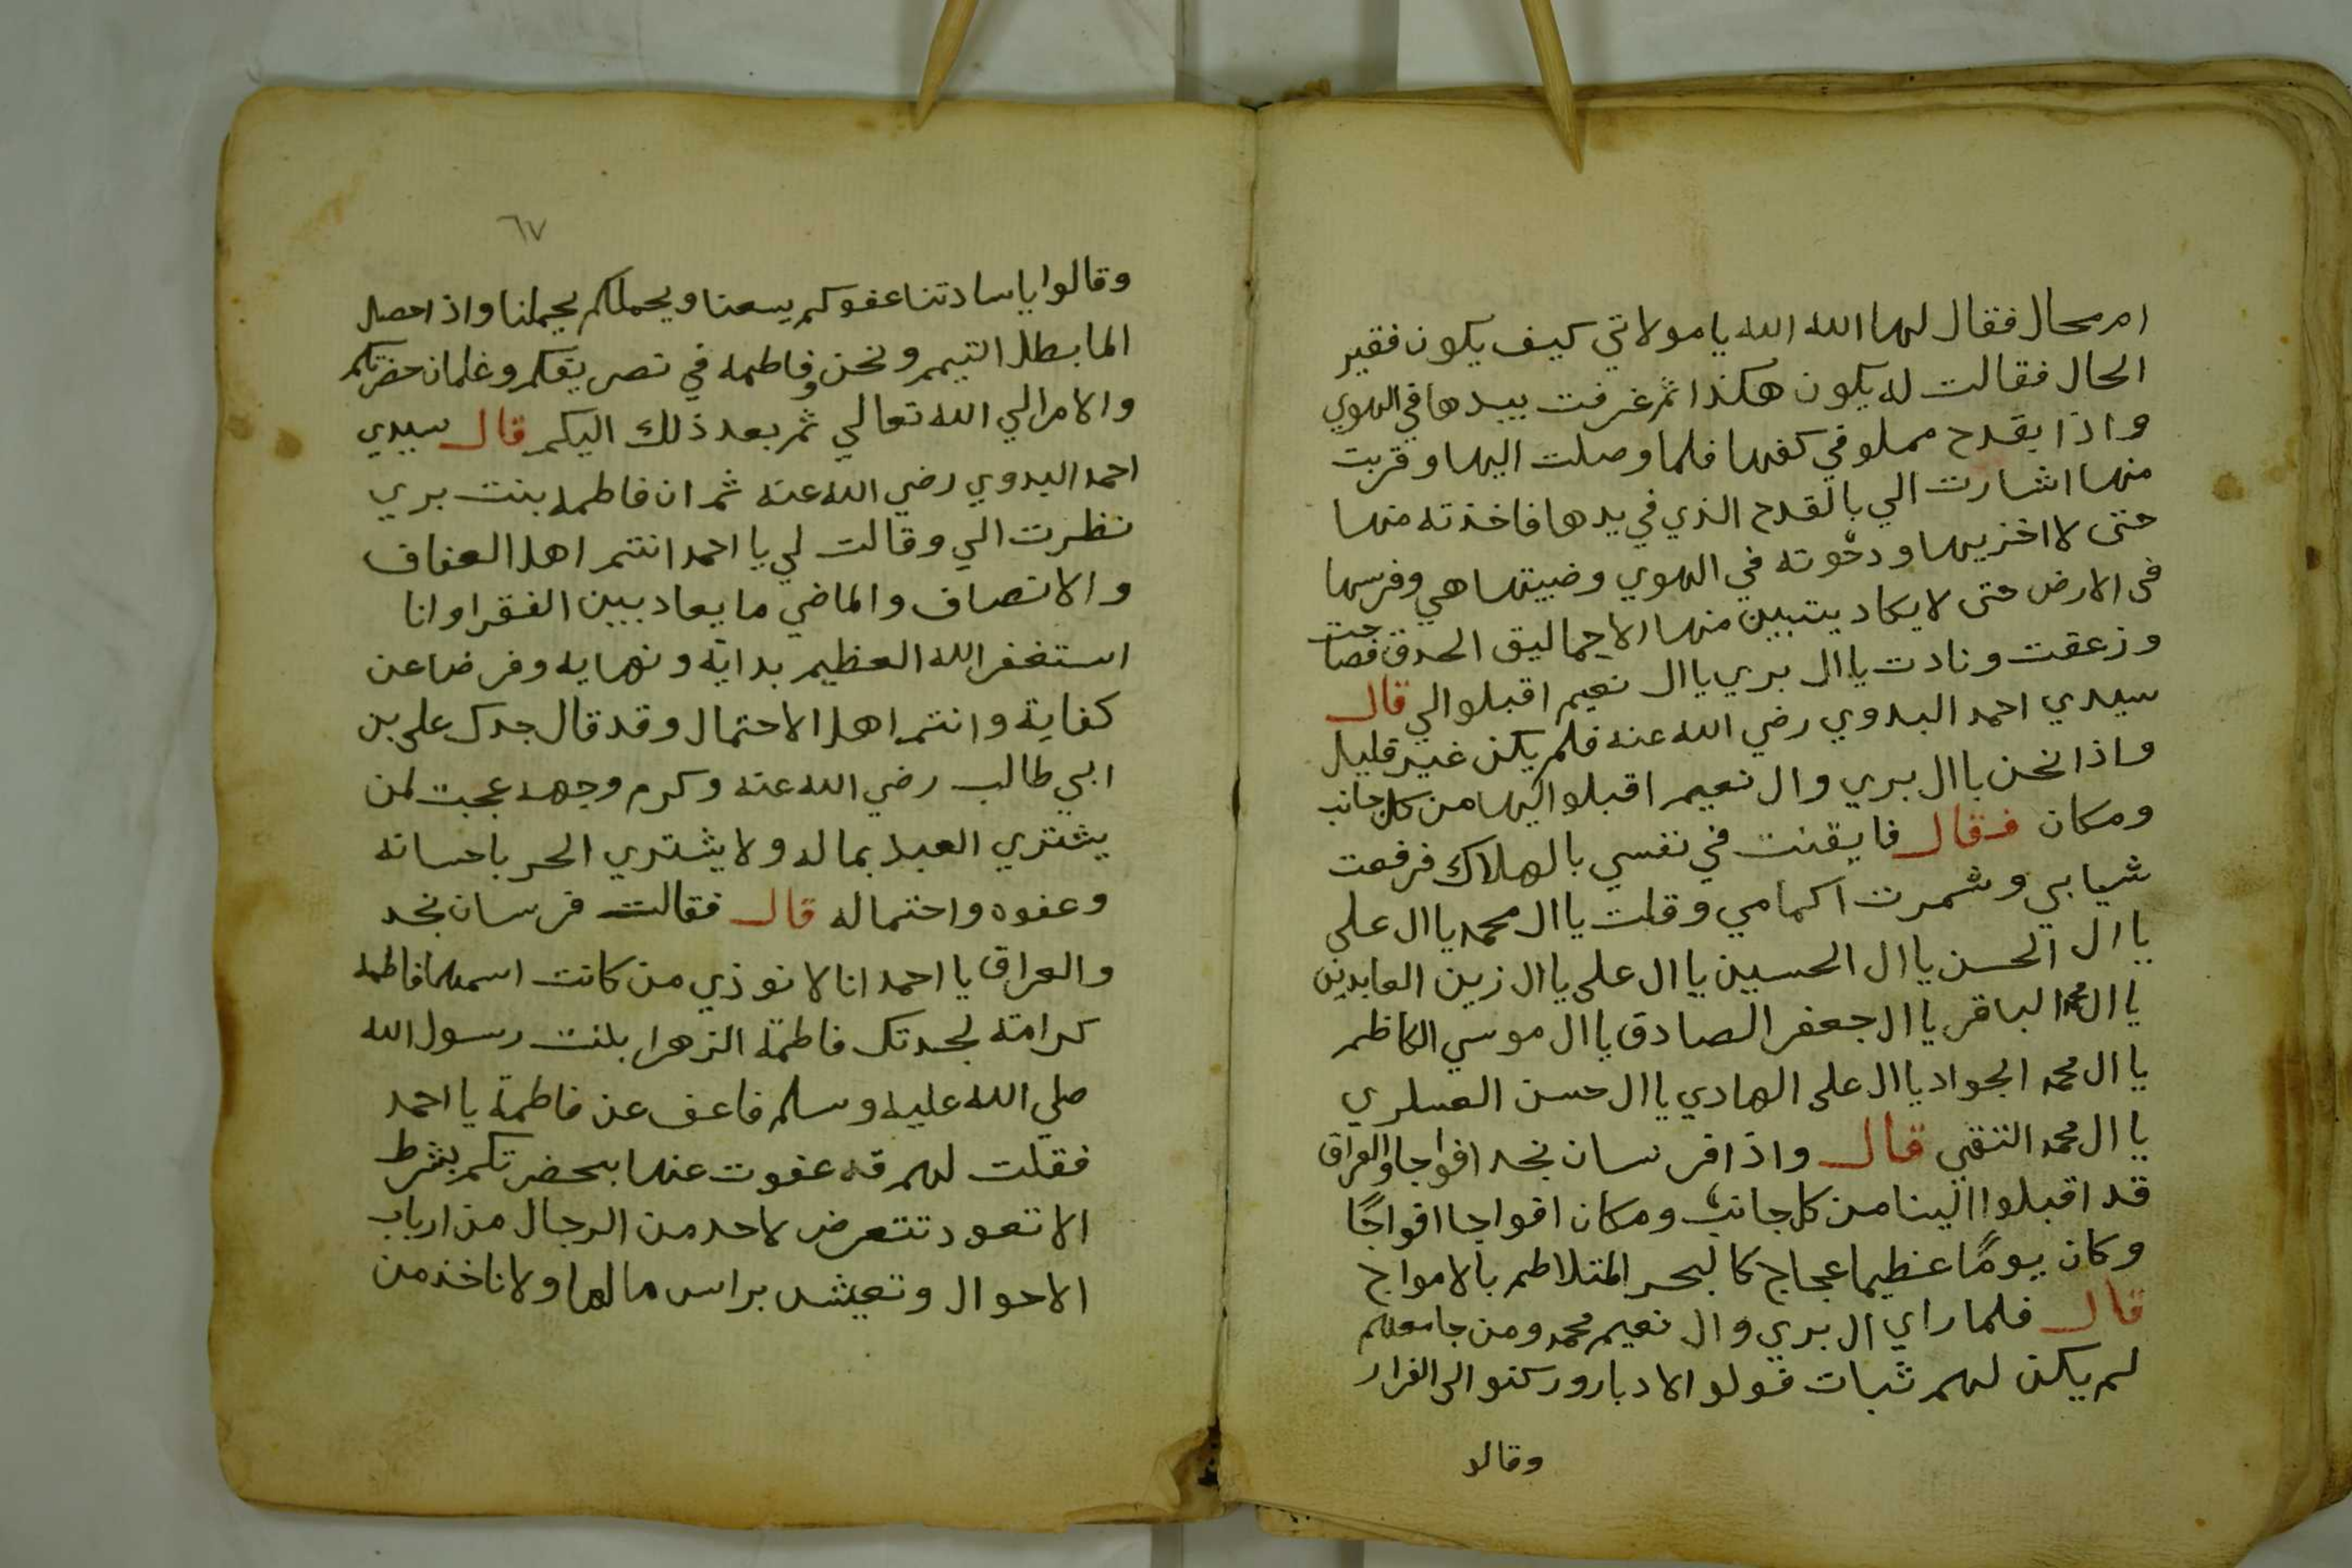 ام محال فقال لها الله الله يا مولاتي كيف يكون فقير
الحال فقالت له يكون هكذا ثم غرفت بيدها في الهوي
واذا بقدح مملو في كفها فلما وصلت اليها وقربت
منها اشارت الي بالقدح الذي في يدها فاخذته منها
حتى لا اخزيها ودحوته في الهوي وضبيتها هي وفرسها
في الارض حتى لا يكاد يتبين منها الا حماليق الحدق فصاحت
وزعقت ونادت يا ال بري يا ال نعيم اقبلوا الي قال
سيدي احمد البدوي رضي الله عنه فلم يكن غير قليل
واذا نحن بال بري وال نعيم اقبلوا اليها من كل جانب
ومكان فقال فايقنت في نفسي بالهلاك فرفعت
شيابي وشمرت اكمامي وقلت يا ال محمد يا ال على
يا ال الحسن يا ال الحسين يا ال على يا ال زين العابدين
يا ال محمد الباقر يا ال جعفر الصادق يا ال موسي الكاظم
يا ال محمد الجواد يا ال على الهادي يا ال حسن العسلري
يا ال محمد التقي قال واذا فرسان نجد افواجا والعراق
قد اقبلوا الينا من كل جانب ومكان افواجا افواجًا
وكان يومًا عظيما عجاج كالبحر المتلاطم بالامواج
قال فلما راي ال بري وال نعيم محمد ومن جا معهم
لم يكن لهم ثبات فولو الادبار وركنوا الى الفرار
وقالو
٦٧
وقالوا يا سادتنا عفوكم يسعنا وبحملكم يحملنا واذا حصل
الما بطل التيمم ونحن وفاطمه في تصريفكم وغلمان حضرتكم
والامر الي الله تعالي ثم بعد ذلك اليكم قال سيدي
احمد البدوي رضي الله عنه ثم ان فاطمه بنت بري
نظرت الي وقالت لي يا احمد انتم اهل العفاف
والانصاف والماضي ما يعاد بين الفقرا وانا
استغفر الله العظيم بداية ونهايه وفرضا عن
كفاية وانتم اهل الاحتمال وقد قال جدك على بن
ابي طالب رضي الله عنه وكرم وجهه عجبت لمن
يشتري العبد بماله ولا يشتري الحر باحسانه
وعفوه واحتماله قال فقالت فرسان نجد
والعراق يا احمد انا لا نوذي من كانت اسمها فاطمه
كرامة لجدتك فاطمة الزهرا بنت رسول الله
صلي الله عليه وسلم فاعف عن فاطمة يا احمد
فقلت لهم قد عفوت عنها بحضرتكم بشرط
الا تعود تتعرض لاحد من الرجال من ارباب
الاحوال وتعيش براس مالها ولا تاخذ من